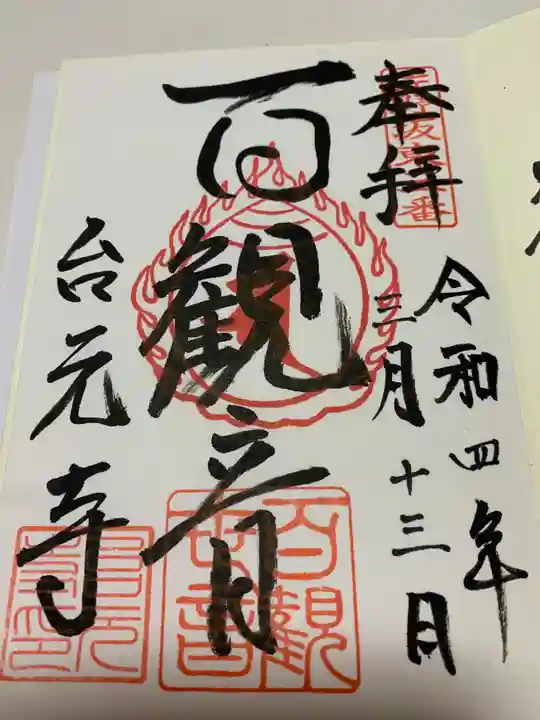 奉拝
令和四年
三月十三日
百観音
台元寺
百観世音